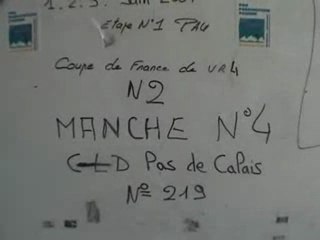 1.2.3. Juin
Etape N°1
Coupe de France de VR4
N2
MANCHE N°4
CLD Pas de Calais
N° 219